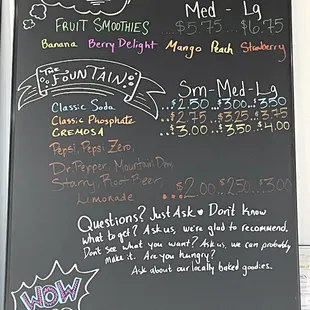 Med - Lg
FRUIT SMOOTHIES $5.75 ... $6.75
Banana Berry Delight Mango Peach Strawberry
THE FOUNTAIN
Sm-Med-Lg
Classic Soda ...$2.50...$3.00...$3.50
Classic Phosphate ...$2.75...$3.25...$3.75
CREMOSA ...$3.00...$3.50...$4.00
Pepsi, Pepsi Zero,
Dr. Pepper, Mountain Dew
Starry, Root Beer,
Limonade ...$2.00..$2.50..$3.00
Questions? Just Ask ♥ Don't know
what to get? Ask us, we're glad to recommend.
Don't see what you want? Ask us, we can probably
make it. Are you hungry?
Ask about our locally baked goodies.
WOW